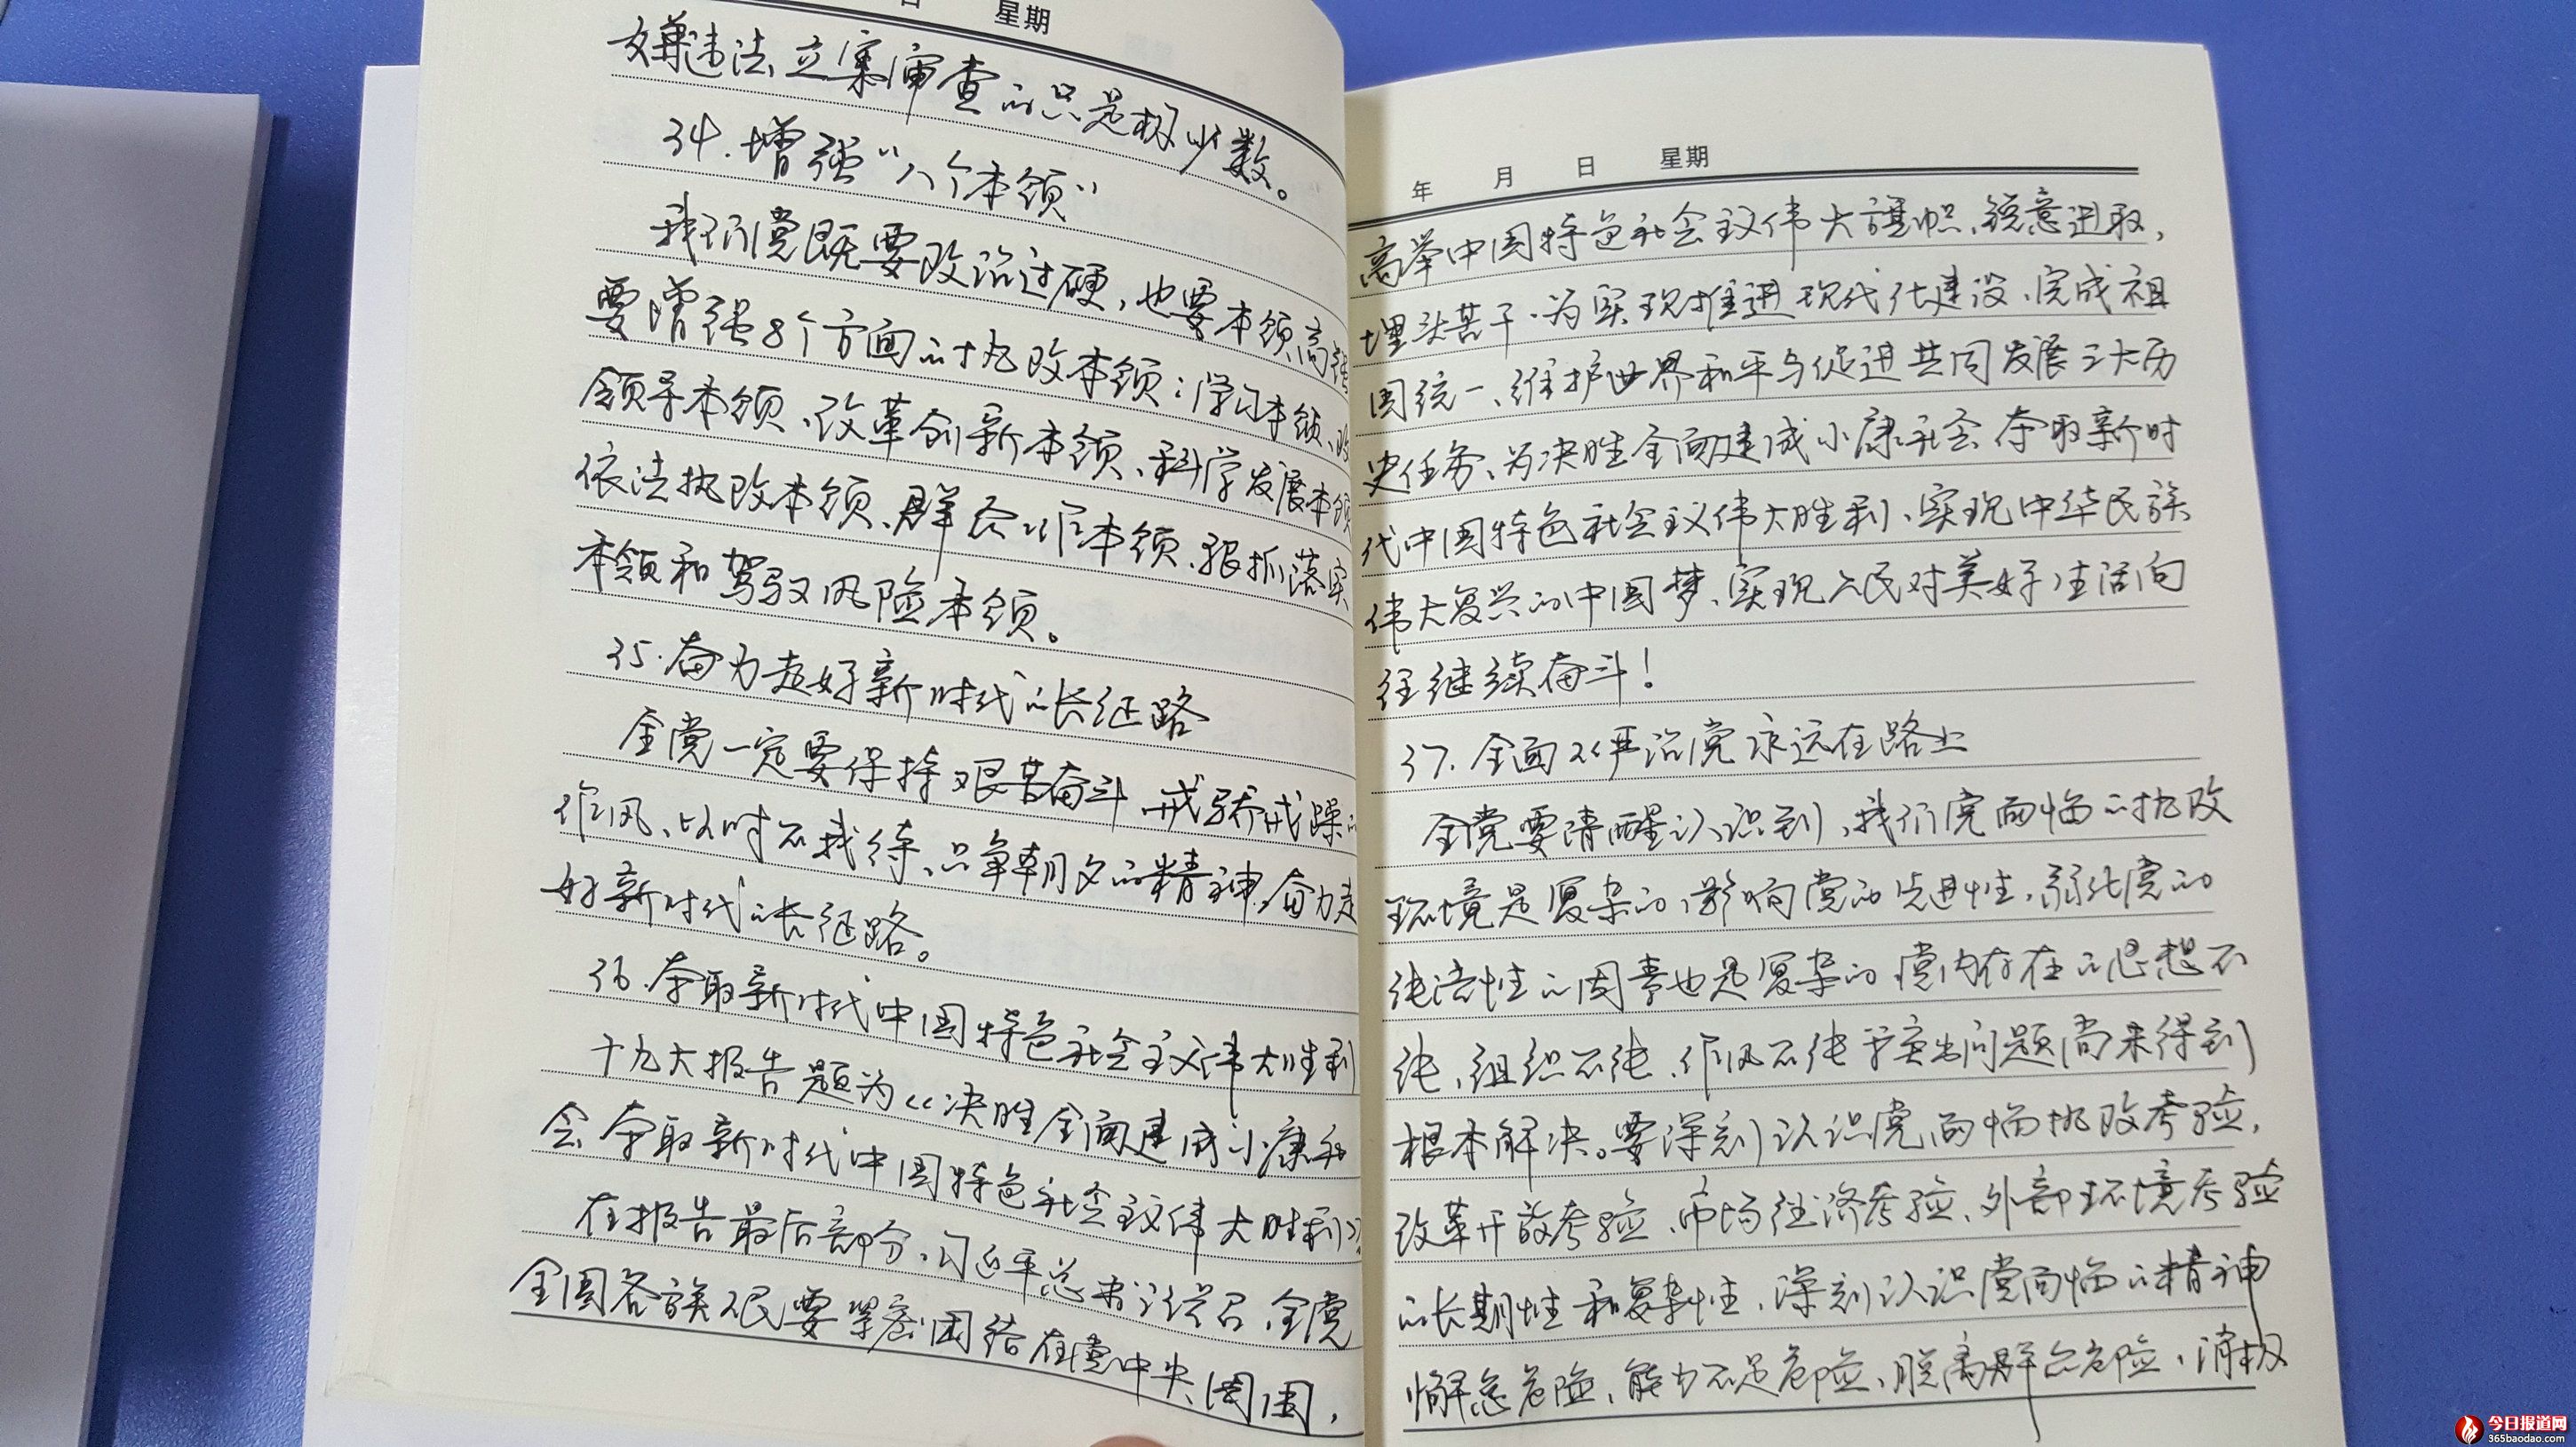 日 星期
嫌违法立案审查的只是极少数。
34.增强“八个本领”
我们党既要政治过硬,也要本领高强
要增强8个方面的执政本领:学习本领、政
领导本领、改革创新本领、科学发展本领
依法执政本领、群众工作本领、狠抓落实
本领和驾驭风险本领。
35.奋力走好新时代的长征路
全党一定要保持艰苦奋斗、戒骄戒躁的
作风,以时不我待、只争朝夕的精神,奋力走
好新时代的长征路。
36.夺取新时代中国特色社会主义伟大胜利
十九大报告题为《决胜全面建成小康社
会 夺取新时代中国特色社会主义伟大胜利》
在报告最后部分,习近平总书记号召,全党
全国各族人民要紧密团结在党中央周围,
年 月 日 星期
高举中国特色社会主义伟大旗帜,锐意进取,
埋头苦干,为实现推进现代化建设、完成祖
国统一、维护世界和平与促进共同发展三大历
史任务,为决胜全面建成小康社会、夺取新时
代中国特色社会主义伟大胜利、实现中华民族
伟大复兴的中国梦、实现人民对美好生活向
往继续奋斗!
37.全面从严治党永远在路上
全党要清醒认识到,我们党面临的执政
环境是复杂的,影响党的先进性,弱化党的
纯洁性的因素也是复杂的,党内存在的思想不
纯、组织不纯、作风不纯等突出问题尚未得到
根本解决。要深刻认识党面临执政考验,
改革开放考验、市场经济考验、外部环境考验
的长期性和复杂性,深刻认识党面临的精神
懈怠危险、能力不足危险、脱离群众危险、消极
今日报道网
365baodao.com